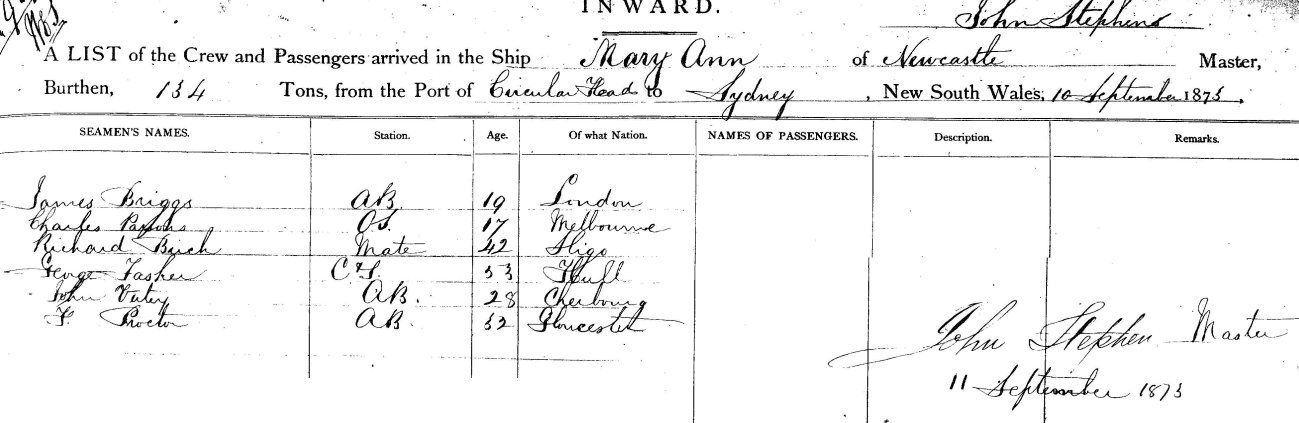 INWARD.
John Stephens
A LIST of the Crew and Passengers arrived in the Ship Mary Ann of Newcastle Master,
Burthen, 134 Tons, from the Port of Circular Head to Sydney, New South Wales, 10 September 1873.
SEAMEN'S NAMES. Station. Age. Of what Nation. NAMES OF PASSENGERS. Description. Remarks.
James Briggs AB. 19 London
Charles Parsons OS. 17 Melbourne
Richard Birch Mate 42 Sligo
George C&S. 53 Hull
John AB. 28 Cherbourg
F. Proctor AB. 32 Gloucester
John Stephen Master
11 September 1873